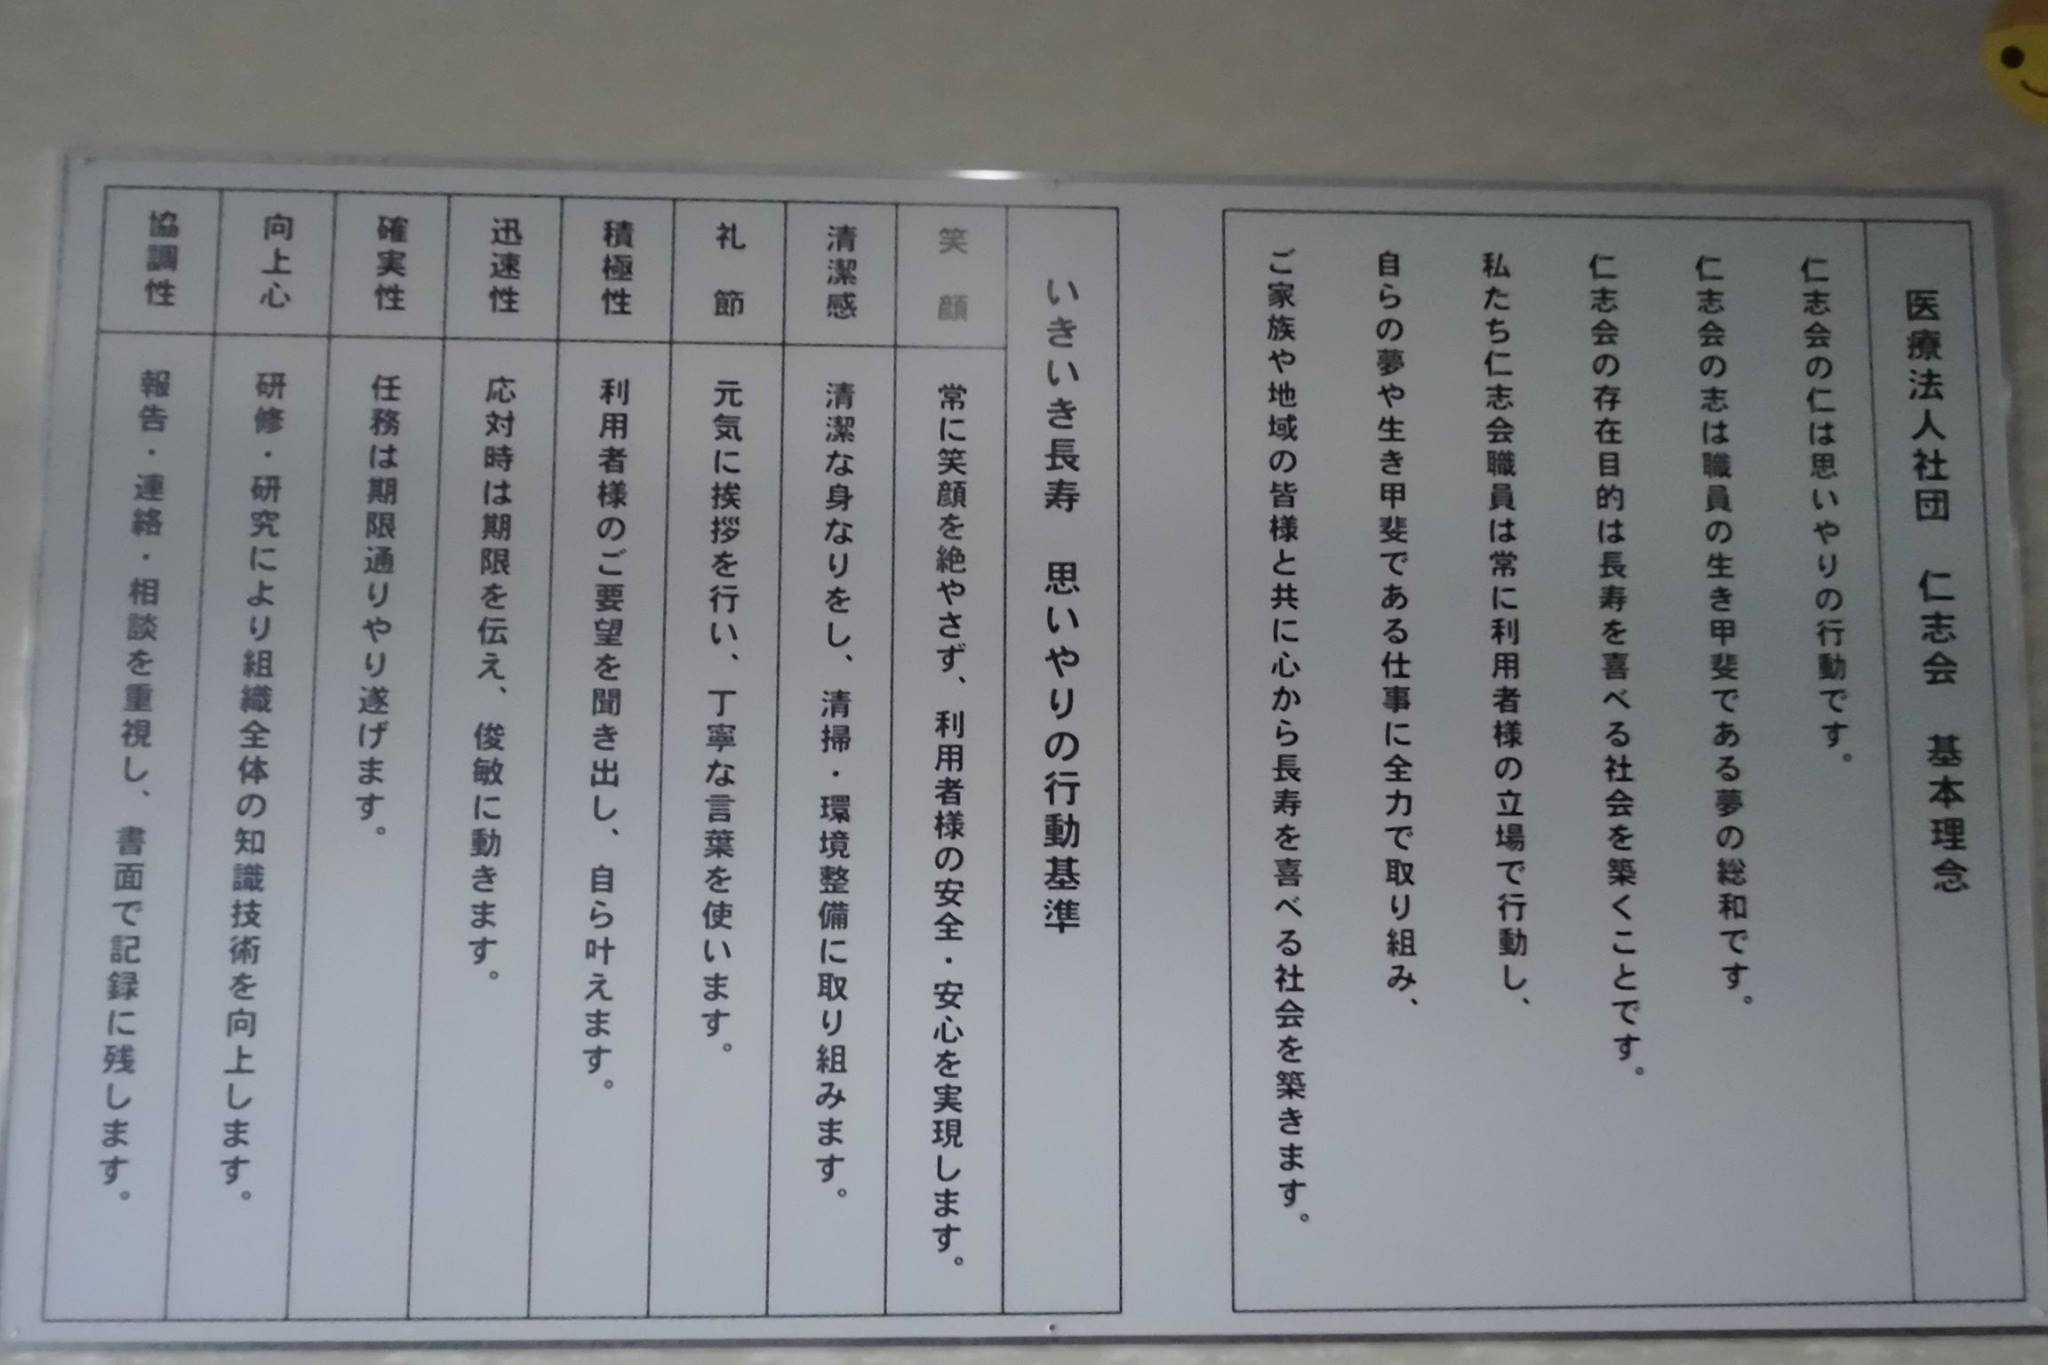 医療法人社団　仁志会　基本理念
仁志会の仁は思いやりの行動です。
仁志会の志は職員の生き甲斐である夢の総和です。
仁志会の存在目的は長寿を喜べる社会を築くことです。
私たち仁志会職員は常に利用者様の立場で行動し、
自らの夢や生き甲斐である仕事に全力で取り組み、
ご家族や地域の皆様と共に心から長寿を喜べる社会を築きます。
いきいき長寿　思いやりの行動基準
笑　顔　常に笑顔を絶やさず、利用者様の安全・安心を実現します。
清潔感　清潔な身なりをし、清掃・環境整備に取り組みます。
礼　節　元気に挨拶を行い、丁寧な言葉を使います。
積極性　利用者様のご要望を聞き出し、自ら叶えます。
迅速性　応対時は期限を伝え、俊敏に動きます。
確実性　任務は期限通りやり遂げます。
向上心　研修・研究により組織全体の知識技術を向上します。
協調性　報告・連絡・相談を重視し、書面で記録に残します。